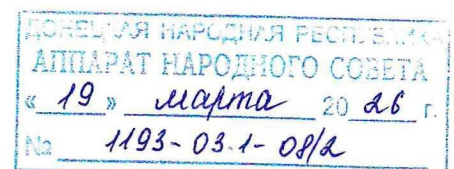 ДОНЕЦКАЯ НАРОДНАЯ РЕСПУБЛИКА
АППАРАТ НАРОДНОГО СОВЕТА
« 19 » марта 20 26 г.
№ 1193-03.1-08/2